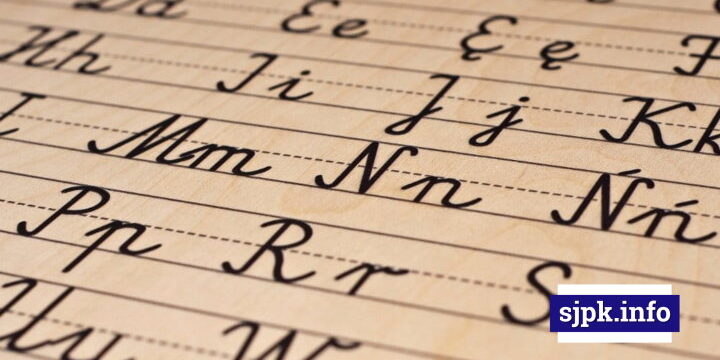 Dd Ee Ęę F
Hh Ii Jj Kk
Mm Nn Ńń
Pp Rr S
Uu W
sjpk.info